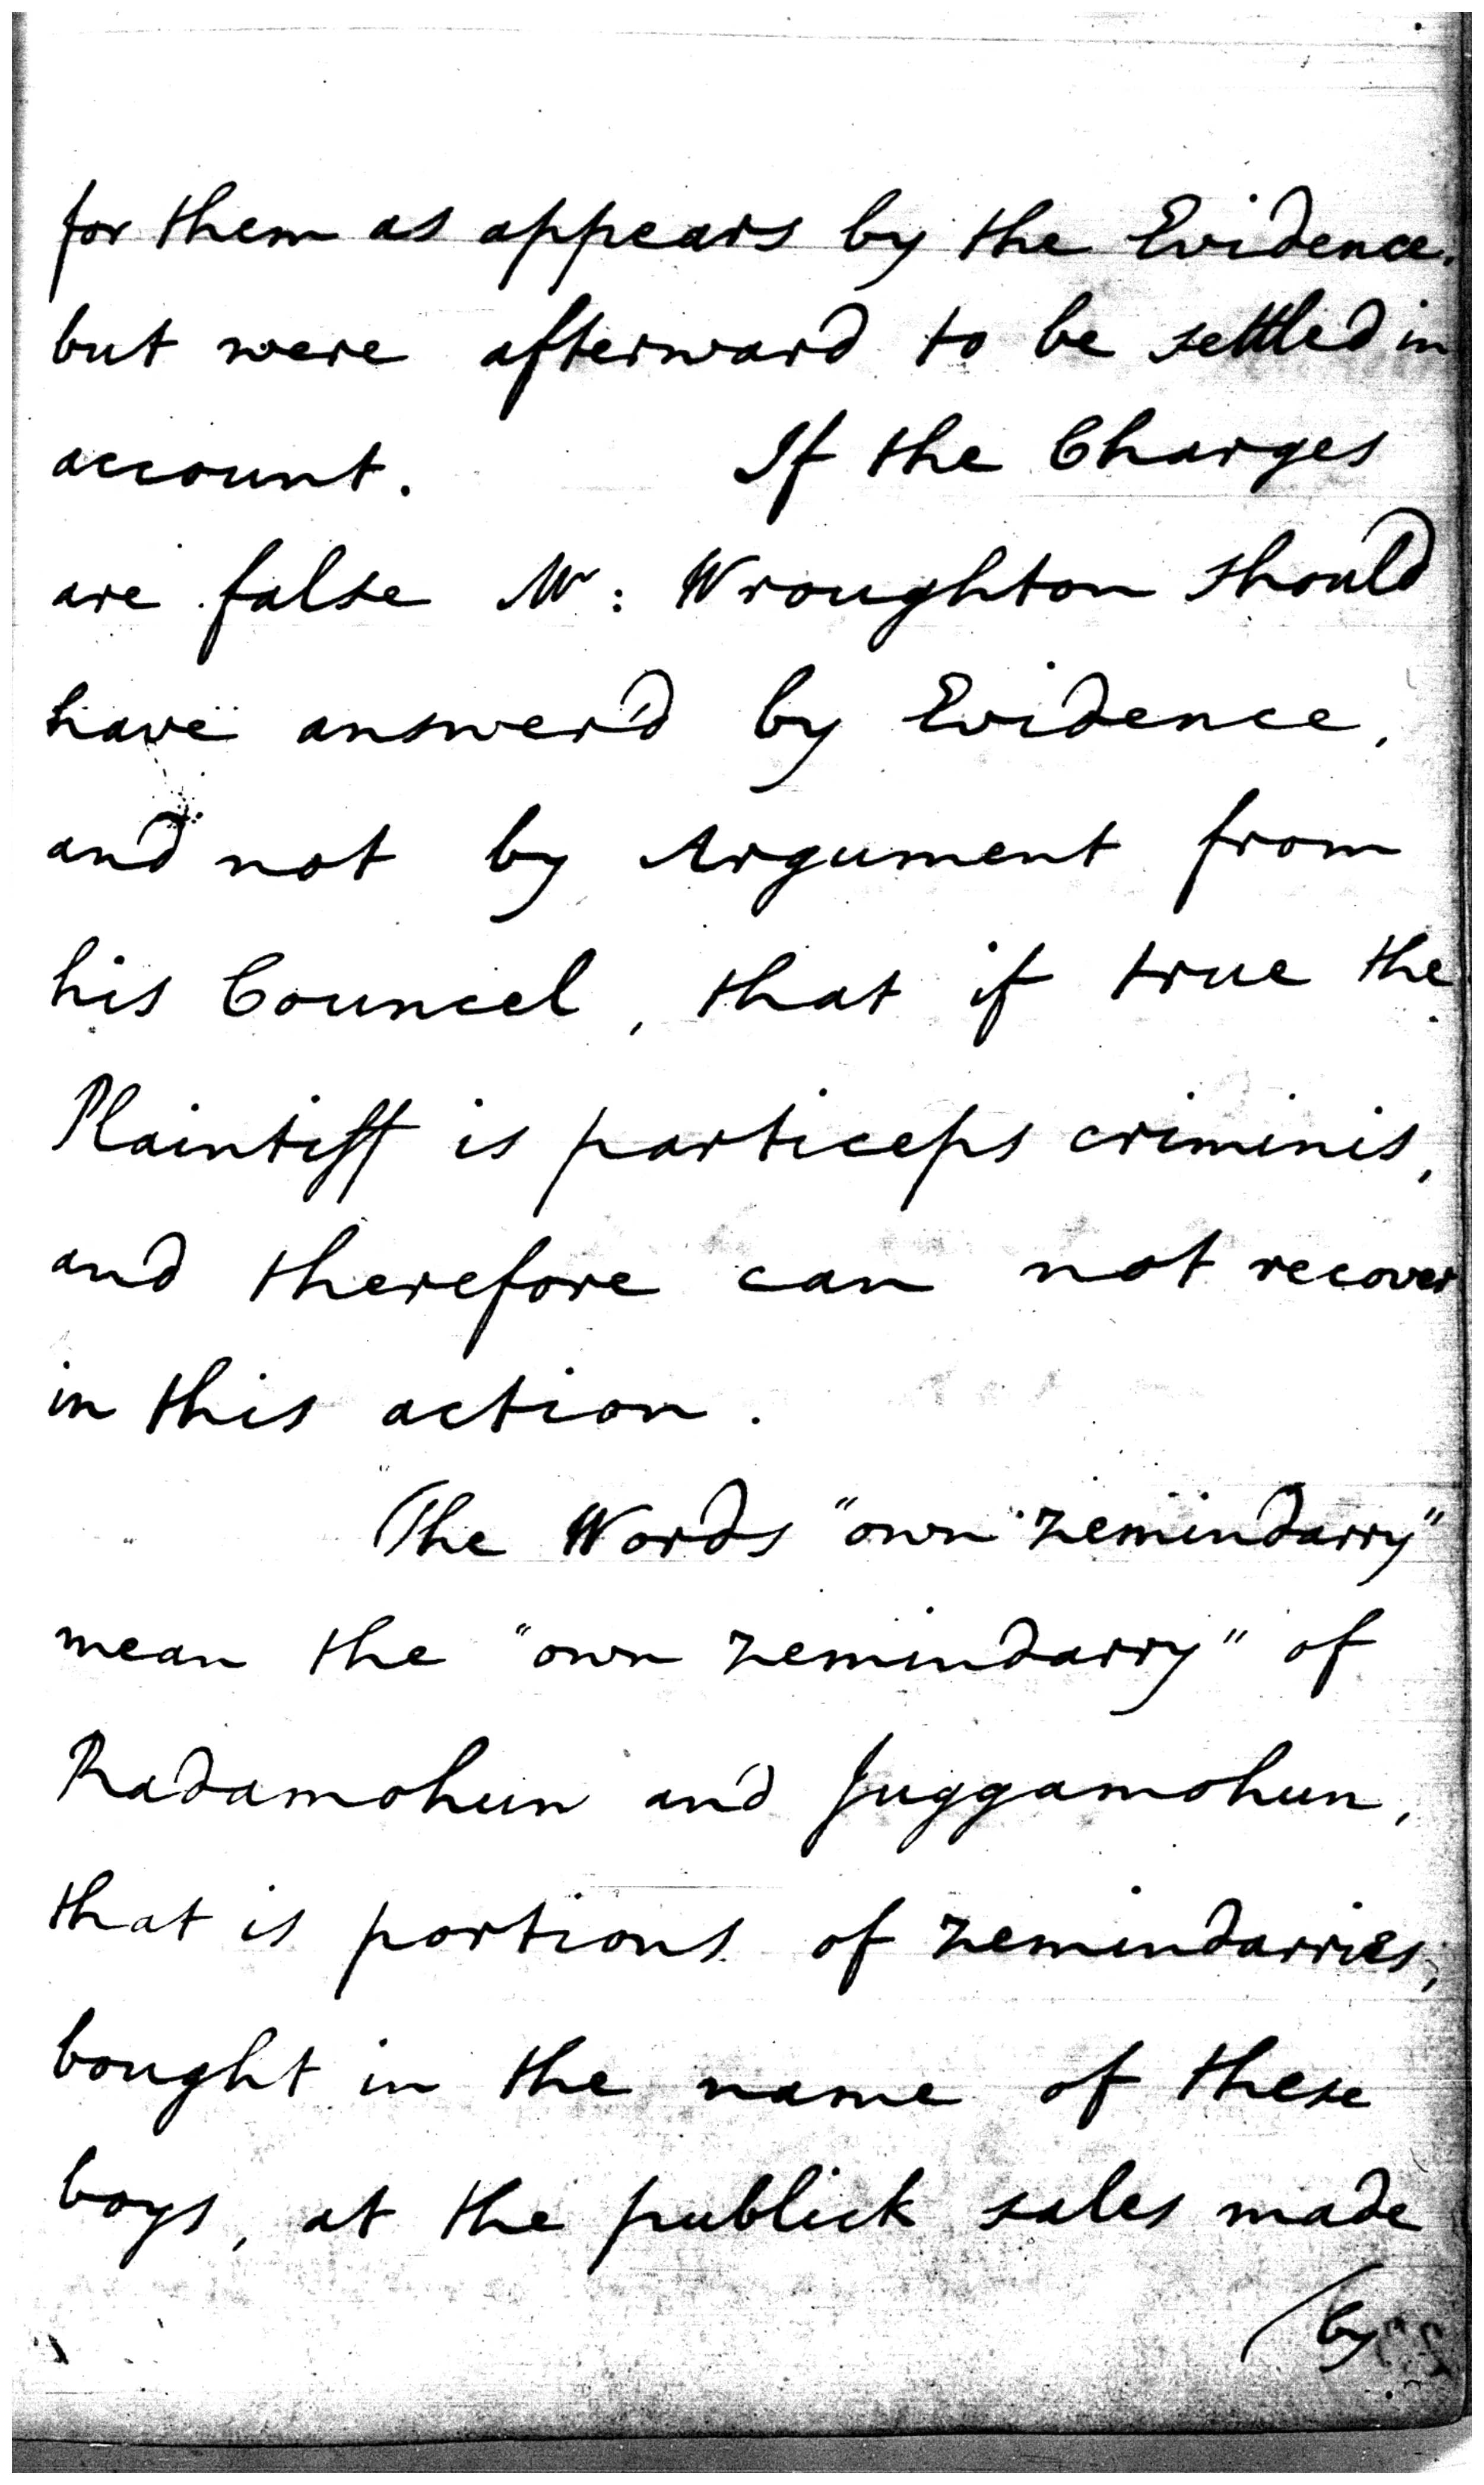 for them as appears by the Evidence.
but were afterward to be settled in
account. If the Charges
are false Mr: Wroughton should
have answer'd by Evidence,
and not by Argument from
his Councel, that if true the
Plaintiff is particeps criminis,
and therefore can not recover
in this action.
The Words "own zemindarry"
mean the "own zemindarry" of
Radamohun and Juggamohun,
that is portions of zemindarries,
bought in the name of these
boys, at the publick sales made
by